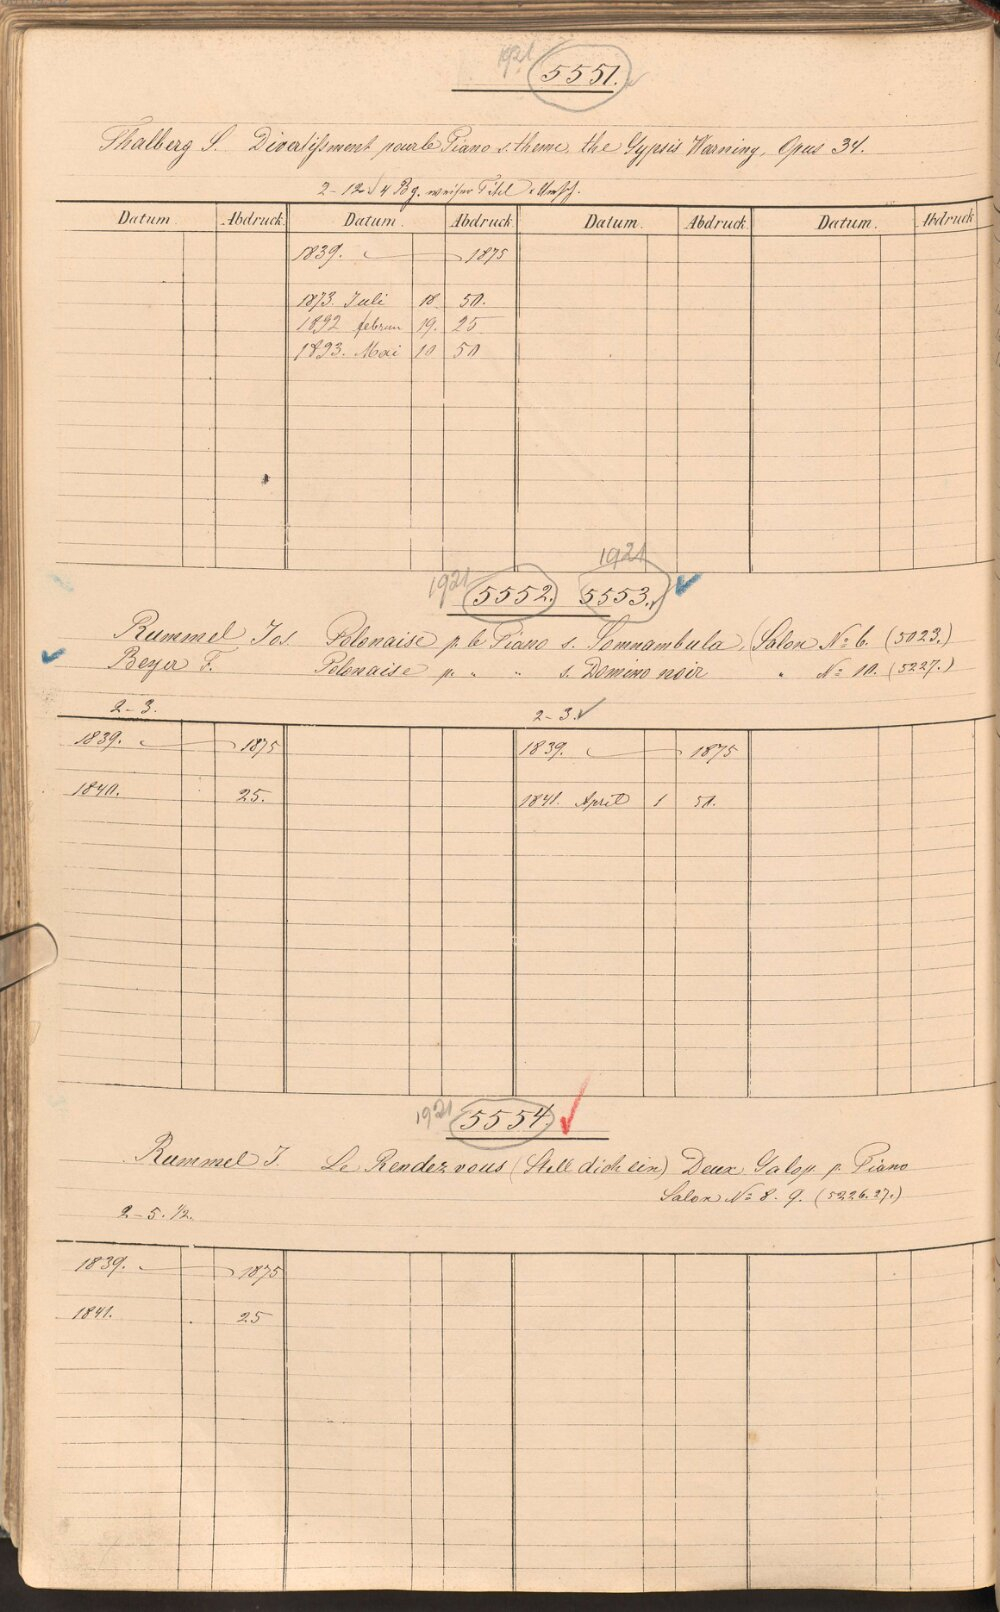 1921 5551.
Thalberg S. Divertissment pour le Piano s. theme, the Gypsis Warning, Opus 34.
2-12 4 Bg. weisser Titel
Datum Abdruck Datum. Abdruck Datum. Abdruck Datum. Abdruck
1839. 1875
1873. Juli 18. 50.
1892 februar 19. 25
1893. Mai 10 50
1921 1921
5552. 5553.
Rummel Jos. Polonaise p. le Piano s. Somnambula, (Salon No 6. (5023.)
Beyer F. Polonaise p. " " s. Domino noir " No 10. (5227.)
2-3. 2-3.
1839. 1875 1839. 1875
1840. 25. 1841. April 1 50.
1921 5554.
Rummel J. Le Rendez vous (Stell dich ein) Deux Galop p. Piano
Salon No 8. 9. (5226.27.)
2-5. 1/2.
1839. 1875
1841. 25